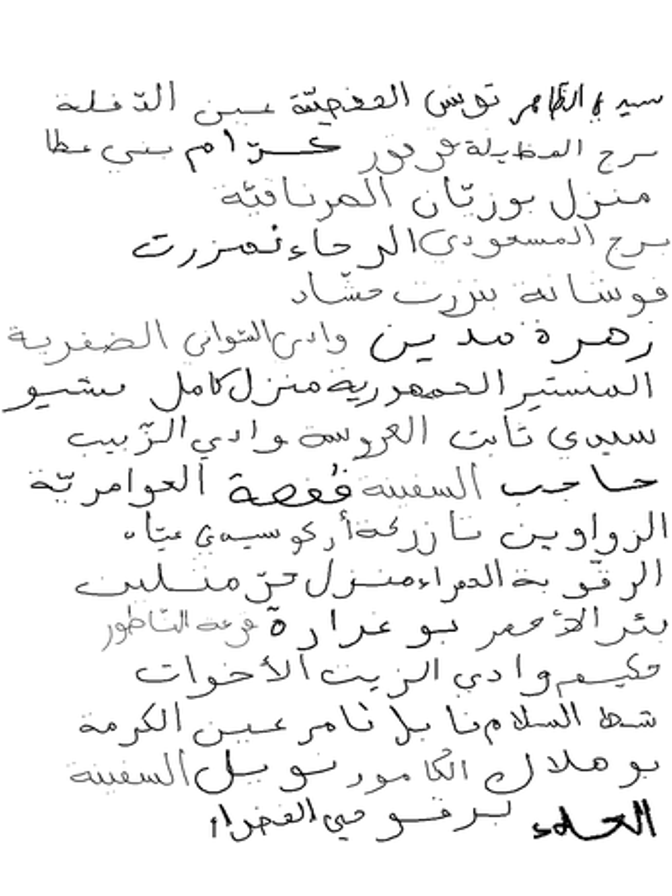 سيدي الظاهر تونس الفحيّة عين الدّفلة
برج الطويلة قرقور خرّام بني عطا
منزل بوزيّان المرناقيّة
برج المسعودي الرحاء تمزرت
فوسانة بنزرت حشّاد
زهرة مدين وادي الشواني الضفرية
المنستير الجمهورية منزل كامل بشيو
سيدي ثابت العروسة وادي الزّبيب
حاجب السفينة قفصة العوامريّة
الزواوين تازركة أركو سيدي عيّاد
الرقّوبة الحمراء منزل حرّ منلين
بئر الأحمر بو غرارة قرعة النّاظور
حكيم وادي الزيت الأخوات
شط السلام نابل ثامر عين الكرمة
بو هلال الكامور نويل السفينة
العلاء برقو حي الخضراء